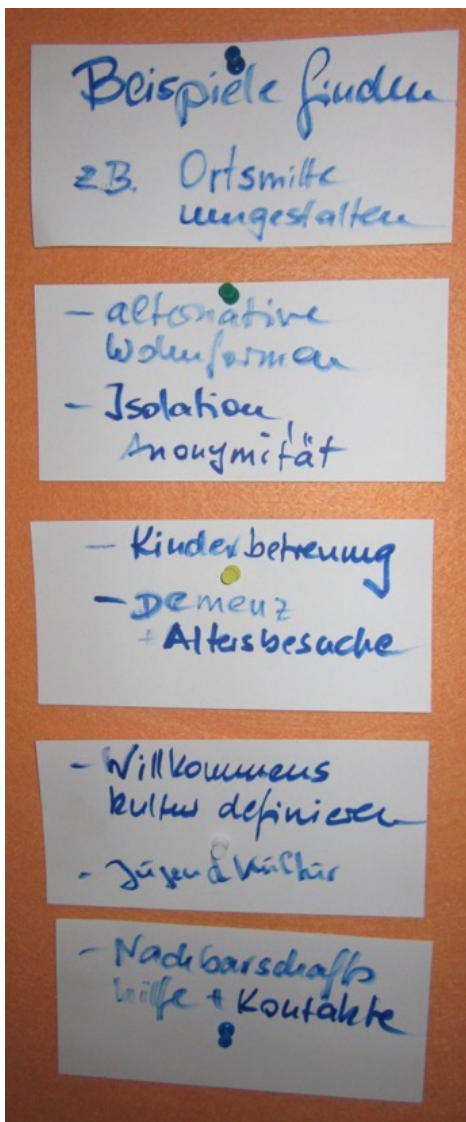 Beispiele finden
z.B. Ortsmitte
umgestalten
- alternative
Wohnformen
- Isolation,
Anonymität
- Kinderbetreuung
- Demenz
+ Altersbesuche
- Willkommens
kultur definieren
- Jugendkultur
- Nachbarschafts
hilfe + Kontakte